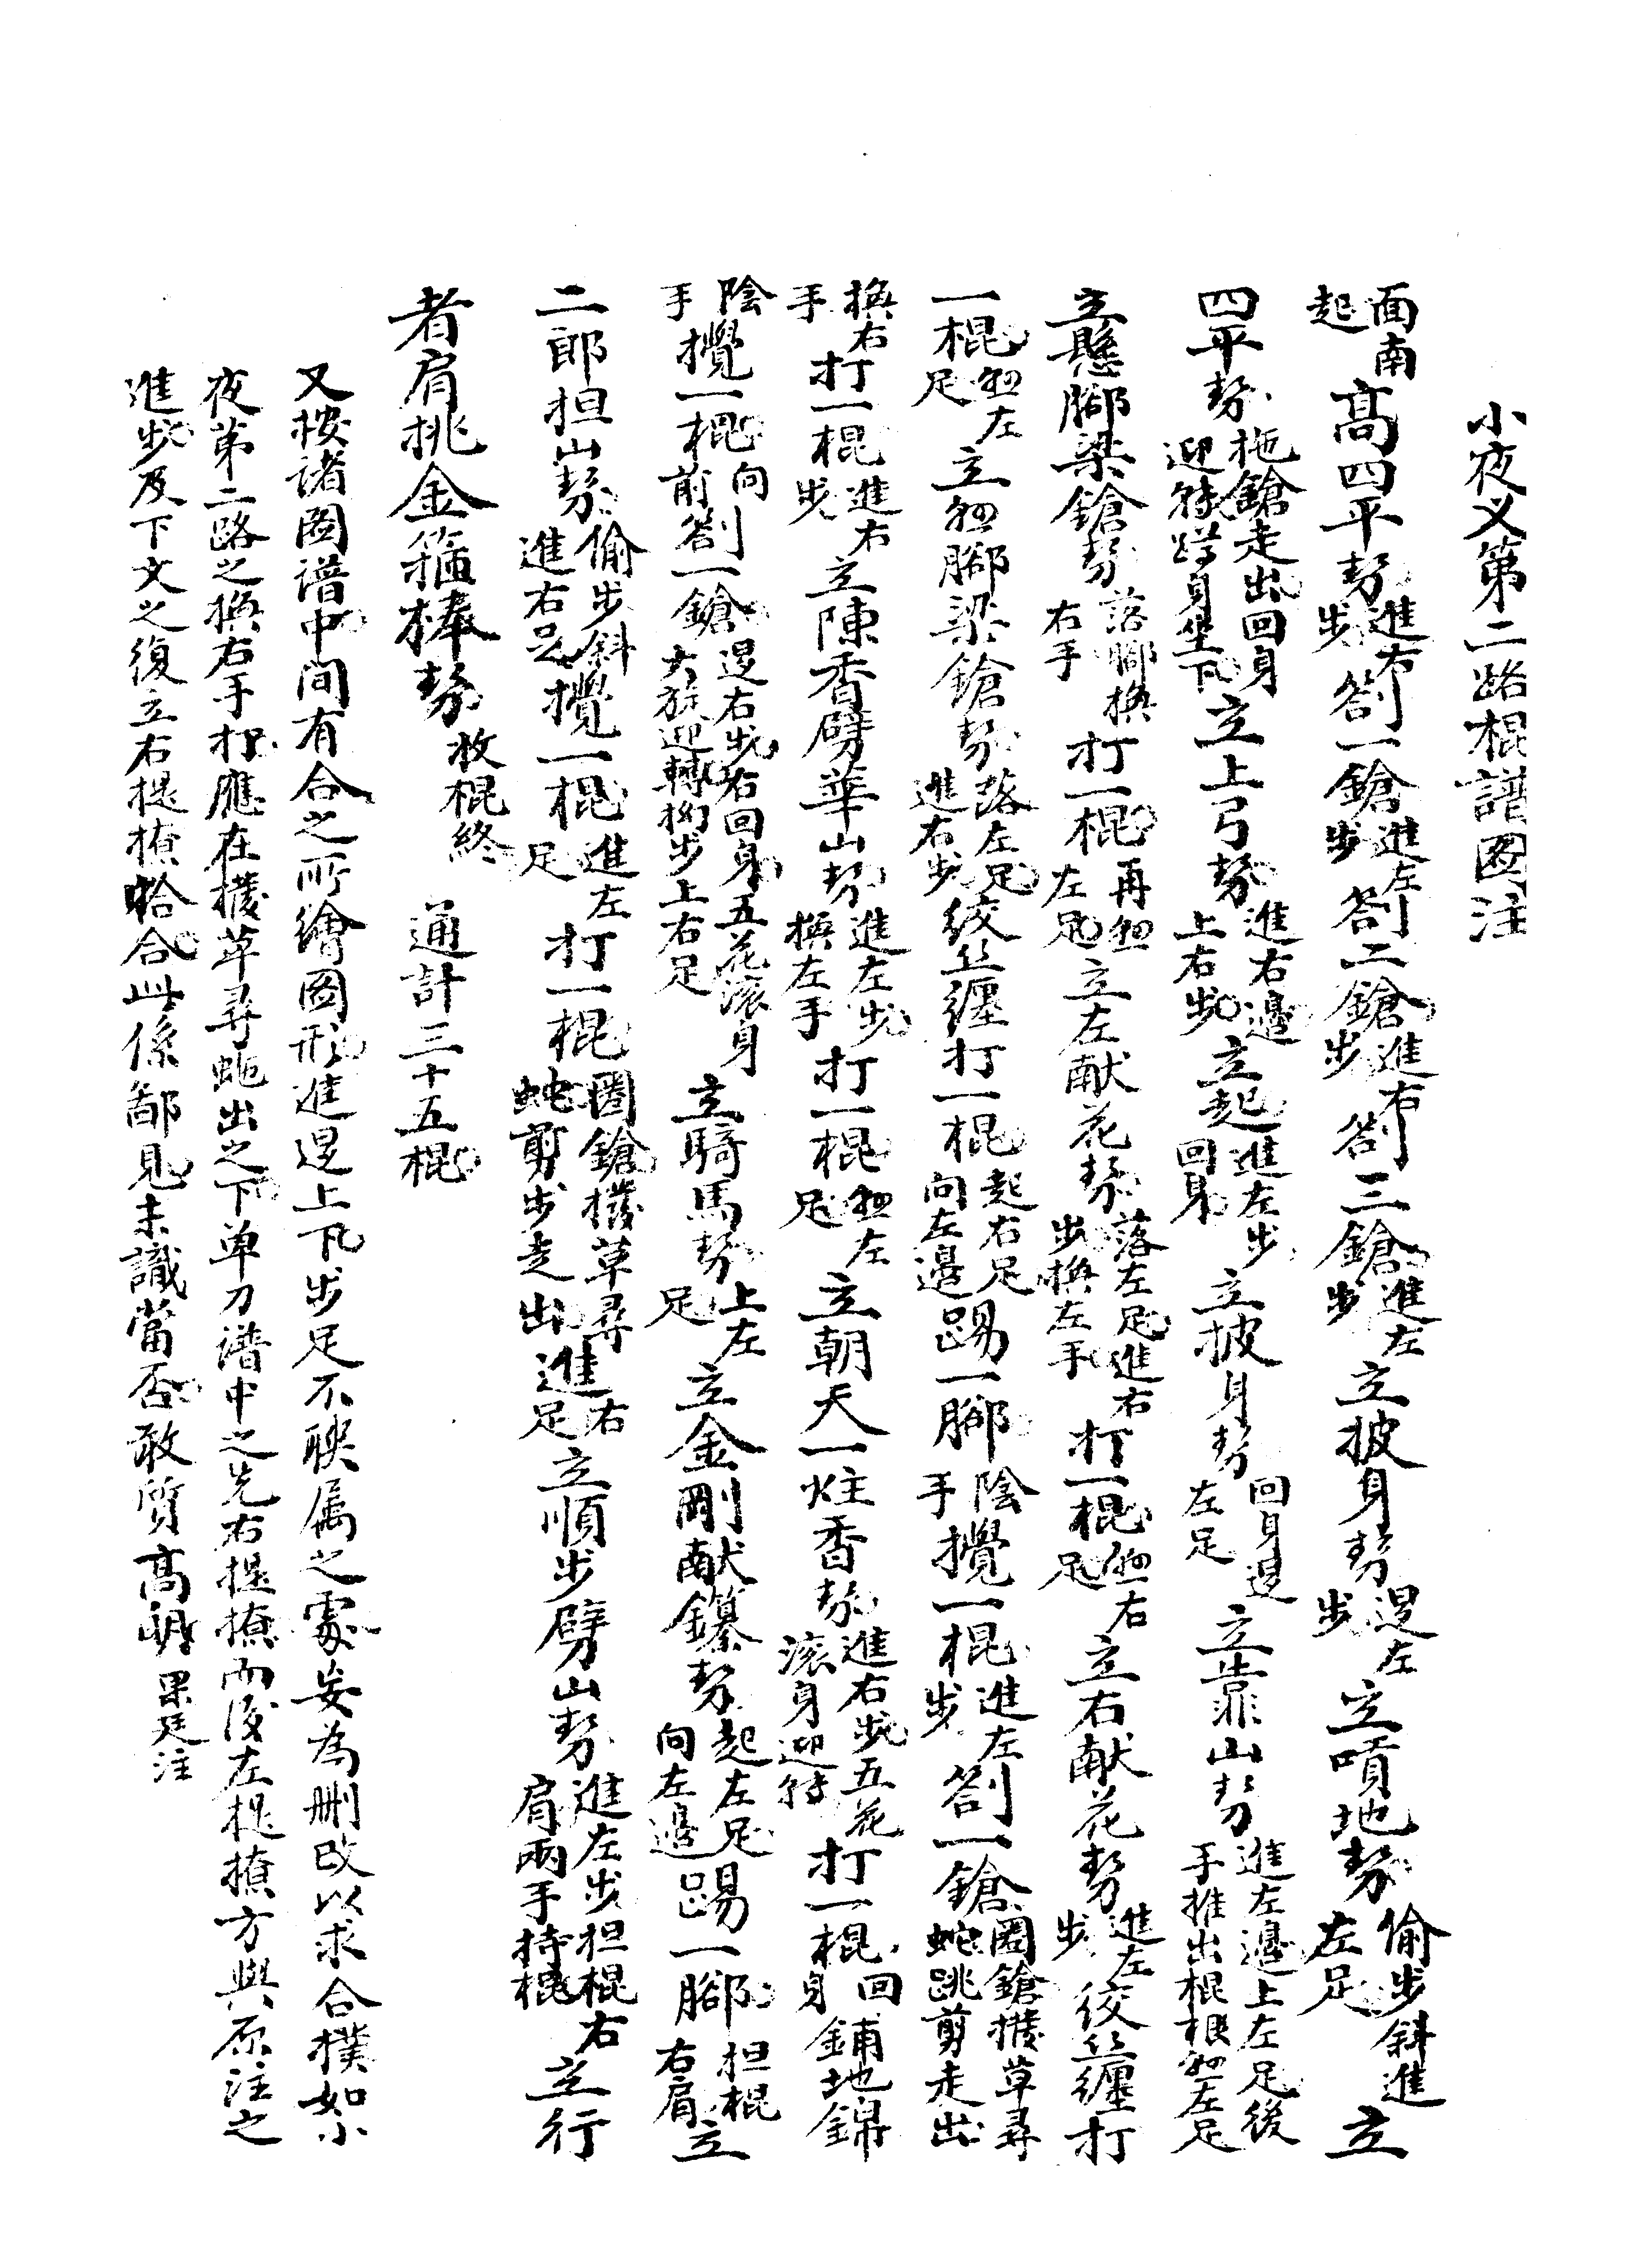 小夜叉第二路棍譜圖注
面南起高四平勢進右步劄一鎗進左步劄二鎗進右步劄三鎗進左步立披身勢退左步立噴地勢偷步斜進左足立
四平勢拖鎗走出回身迎轉蹲身坐下立上弓勢進右邊上右步立起進左步回身立披身勢回身退左足立靠山勢進左邊上左足後手推出棍根懸左足
立懸腳梁鎗勢落腳換右手打一棍再懸左足立左献花勢落左足進右步換左手打一棍懸右足立右献花勢進左步絞絲纏打
一棍懸左足立懸腳梁鎗勢落左足進右步絞絲纏打一棍起右足向左邊踢一腳陰手攪一棍進左步劄一鎗圈鎗撥草尋蛇跳剪走出
換右手打一棍進右步立陳香劈華山勢進左步換左手打一棍懸左足立朝天一炷香勢進右步五花滚身迎轉打一棍回身鋪地錦
陰手攪一棍向前劄一鎗退右步右回身五花滚身大旋迎轉拗步上右足立騎馬勢上左足立金剛献鑽勢起左足向左邊踢一腳担棍右肩立
二郎担山勢偷步斜進右足攪一棍進左足打一棍圈鎗撥草尋蛇剪步走出進右足立順步劈山勢進左步担棍右肩兩手持棍立行
者肩挑金箍棒勢收棍終　通計三十五棍
又按諸圖譜中間有合之所繪圖形進退上下步足不聯属之處妄為删改以求合樸如小
夜第二路之換右手打應在撥草尋蛇出之下單刀譜中之先右提撩而後左提撩方與原注之
進步及下文之復立右提撩恰合此係鄙見未識當否敢質高明　果廷注